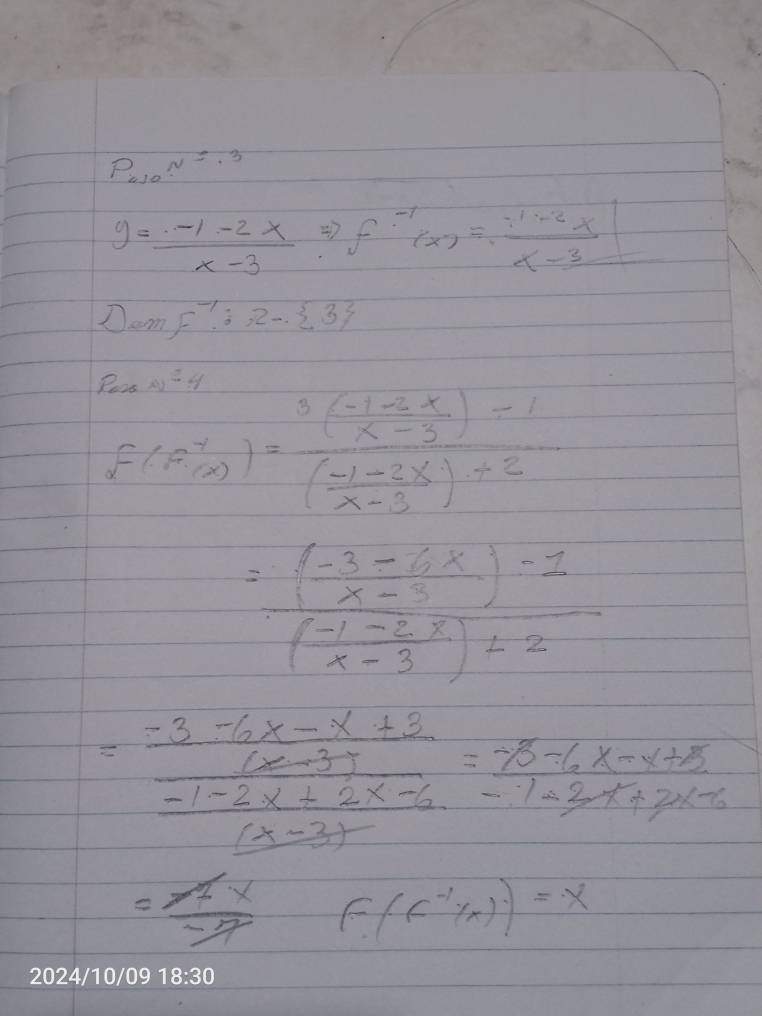 Paso Nº 3
y = -1-2x / x-3 => f^-1(x) = -1-2x / x-3
Dom f^-1: R-{3}
Paso Nº 4
f(f^-1(x)) = 3(-1-2x / x-3) - 1 / (-1-2x / x-3) + 2
= (-3-6x / x-3) - 1 / (-1-2x / x-3) + 2
= -3-6x-x+3 / (x-3) / -1-2x+2x-6 / (x-3) = -3-6x-x+3 / -1-2x+2x-6
= -7x / -7 f(f^-1(x)) = x
2024/10/09 18:30